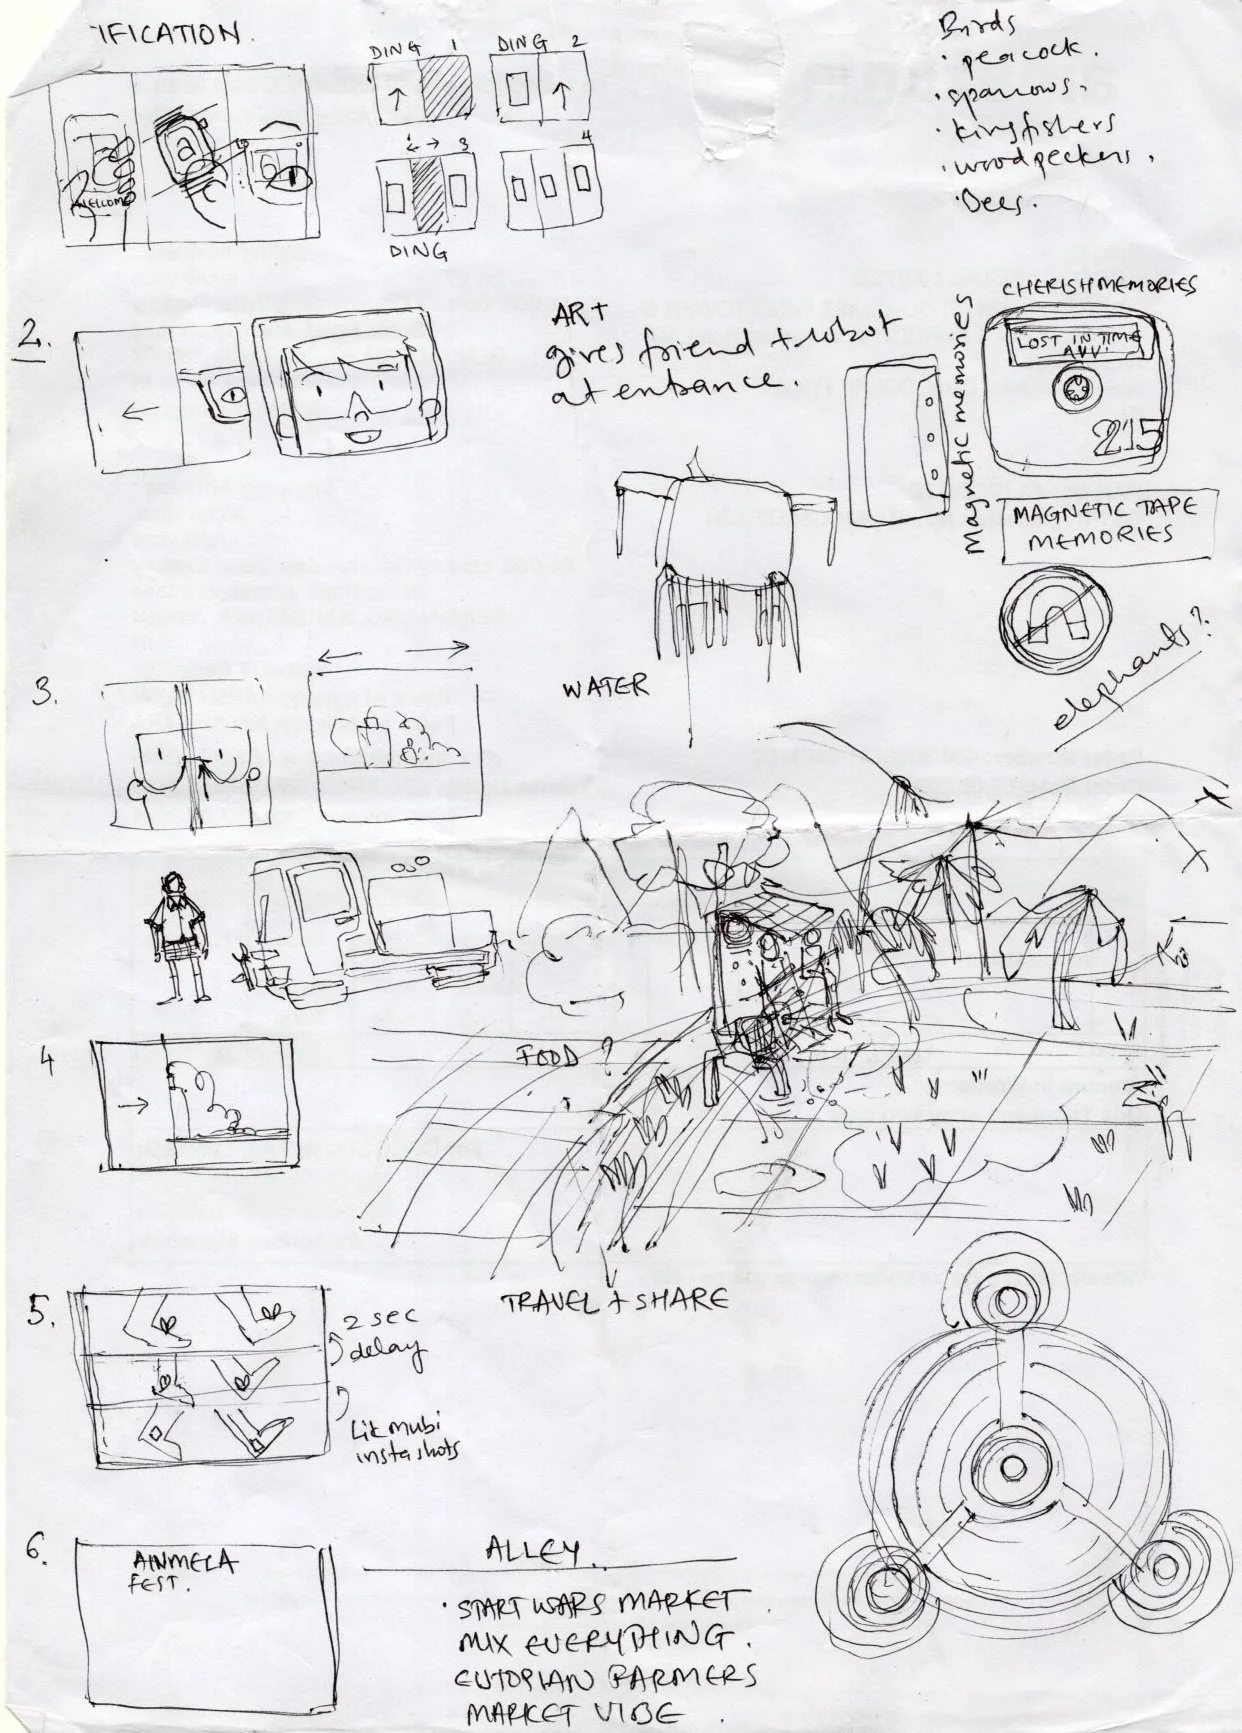 IFICATION.
DING 1
DING 2
3
4
DING
WELCOME
Birds
· peacock.
· sparrows.
· kingfishers
· woodpeckers.
· Dees.
2.
ART
gives friend + robot
at entrance.
Magnetic memories
CHERISH MEMORIES
LOST IN TIME
215
MAGNETIC TAPE
MEMORIES
elephants?
3.
WATER
4
FOOD ?
TRAVEL + SHARE
5.
2 sec
delay
Lik mubi
instashots
6.
FEST.
ALLEY.
· START WARS MARKET.
MIX EVERYTHING.
EUTOPIAN FARMERS
MARKET VIBE.